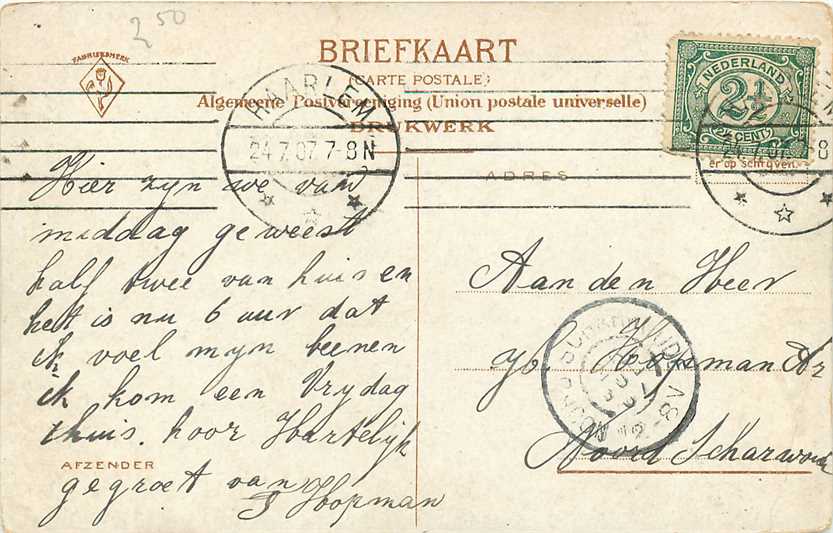 2 50
FABRIEKSMERK
BRIEFKAART
(CARTE POSTALE)
Algemeene Postvereeniging (Union postale universelle)
DRUKWERK
NEDERLAND
2½
2½ CENT
er op Schrijven.
HAARLEM
24.7.07 7-8N
ADRES
Hier zyn we van
middag geweest
half twee van huis en
het is nu 6 uur dat
ik voel myn beenen
ik kom een Vrydag
thuis. hoor Hartelijk
gegroet van
J Hopman
AFZENDER
Aan den Heer
Hopman
Noord Scharwoude